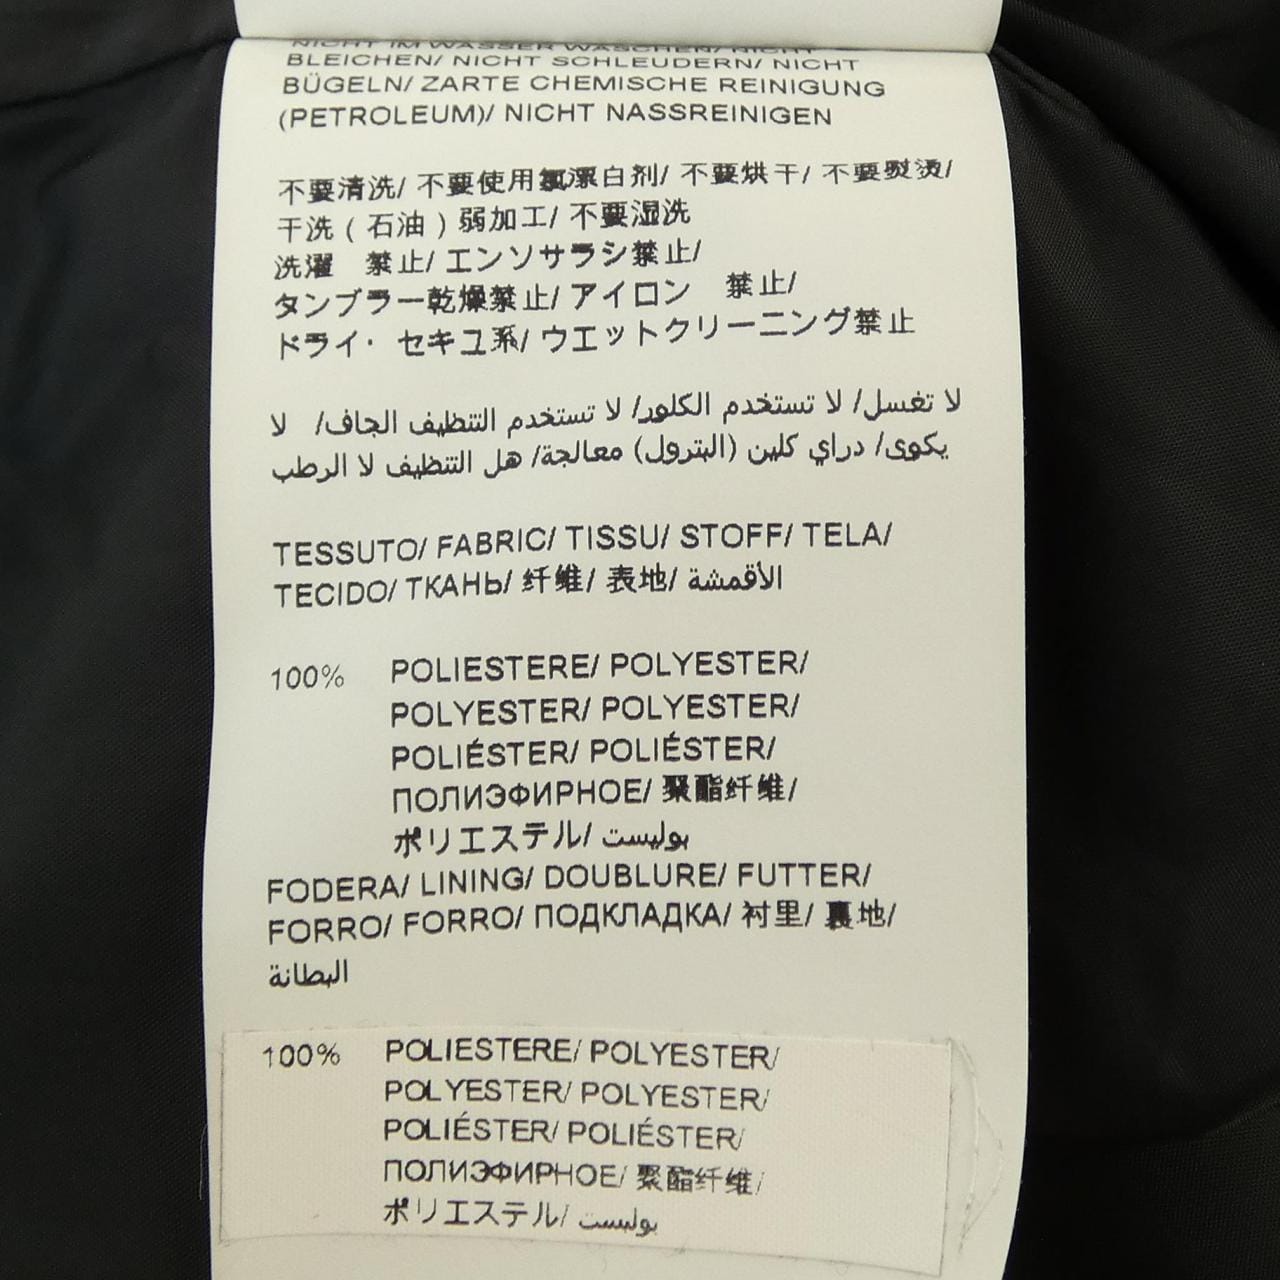 NICHT IM WASSER WASCHEN/ NICHT
BLEICHEN/ NICHT SCHLEUDERN/ NICHT
BÜGELN/ ZARTE CHEMISCHE REINIGUNG
(PETROLEUM)/ NICHT NASSREINIGEN
不要清洗/ 不要使用氯漂白剂/ 不要烘干/ 不要熨烫/
干洗（石油）弱加工/ 不要湿洗
洗濯　禁止/ エンソサラシ禁止/
タンブラー乾燥禁止/ アイロン　禁止/
ドライ・セキユ系/ ウエットクリーニング禁止
لا تغسل/ لا تستخدم الكلور/ لا تستخدم التنظيف الجاف/ لا
يكوى/ دراي كلين (البترول) معالجة/ هل التنظيف لا الرطب
TESSUTO/ FABRIC/ TISSU/ STOFF/ TELA/
TECIDO/ ТКАНЬ/ 纤维/ 表地/ الأقمشة
100% POLIESTERE/ POLYESTER/
POLYESTER/ POLYESTER/
POLIÉSTER/ POLIÉSTER/
ПОЛИЭФИРНОЕ/ 聚酯纤维/
ポリエステル/ بوليست
FODERA/ LINING/ DOUBLURE/ FUTTER/
FORRO/ FORRO/ ПОДКЛАДКА/ 衬里/ 裏地/
البطانة
100% POLIESTERE/ POLYESTER/
POLYESTER/ POLYESTER/
POLIÉSTER/ POLIÉSTER/
ПОЛИЭФИРНОЕ/ 聚酯纤维/
ポリエステル/ بوليست